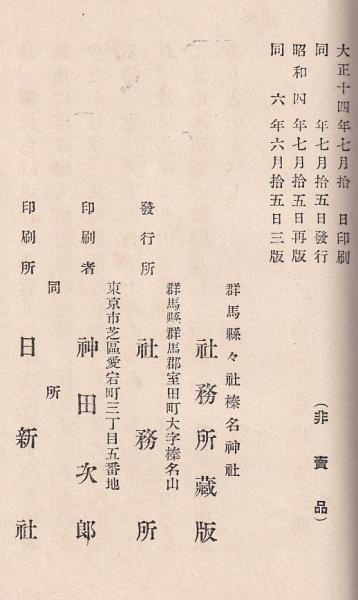 大正十四年七月拾日印刷
同年七月拾五日發行
昭和四年七月拾五日再版
同六年六月拾五日三版
(非賣品)
群馬縣々社榛名神社
社務所藏版
群馬縣群馬郡室田町大字榛名山
發行所 社務所
東京市芝區愛宕町三丁目五番地
印刷者 神田次郎
同所
印刷所 日新社